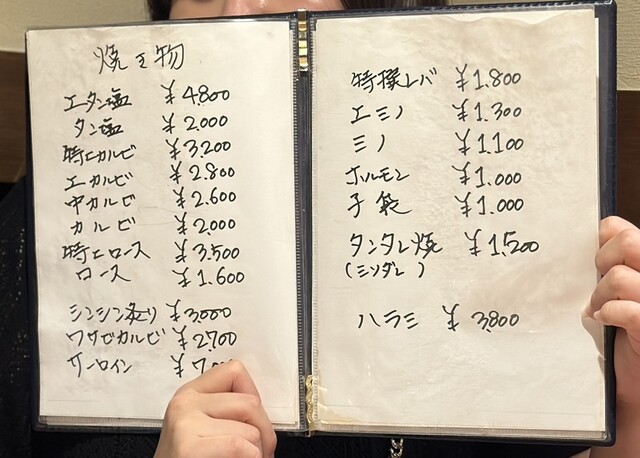 焼き物
上タン塩 ¥4800
タン塩 ¥2.000
特上カルビ ¥3.200
上カルビ ¥2.800
中カルビ ¥2.600
カルビ ¥2.000
特上ロース ¥3.500
ロース ¥1.600
シンシン炙り ¥3,000
ワサビカルビ ¥2.700
サーロイン
特撰レバ ¥1.800
上ミノ ¥1.300
ミノ ¥1.100
ホルモン ¥1.000
子袋 ¥1.000
タンタレ焼 ¥1.500
(ミソダレ)
ハラミ ¥3,800